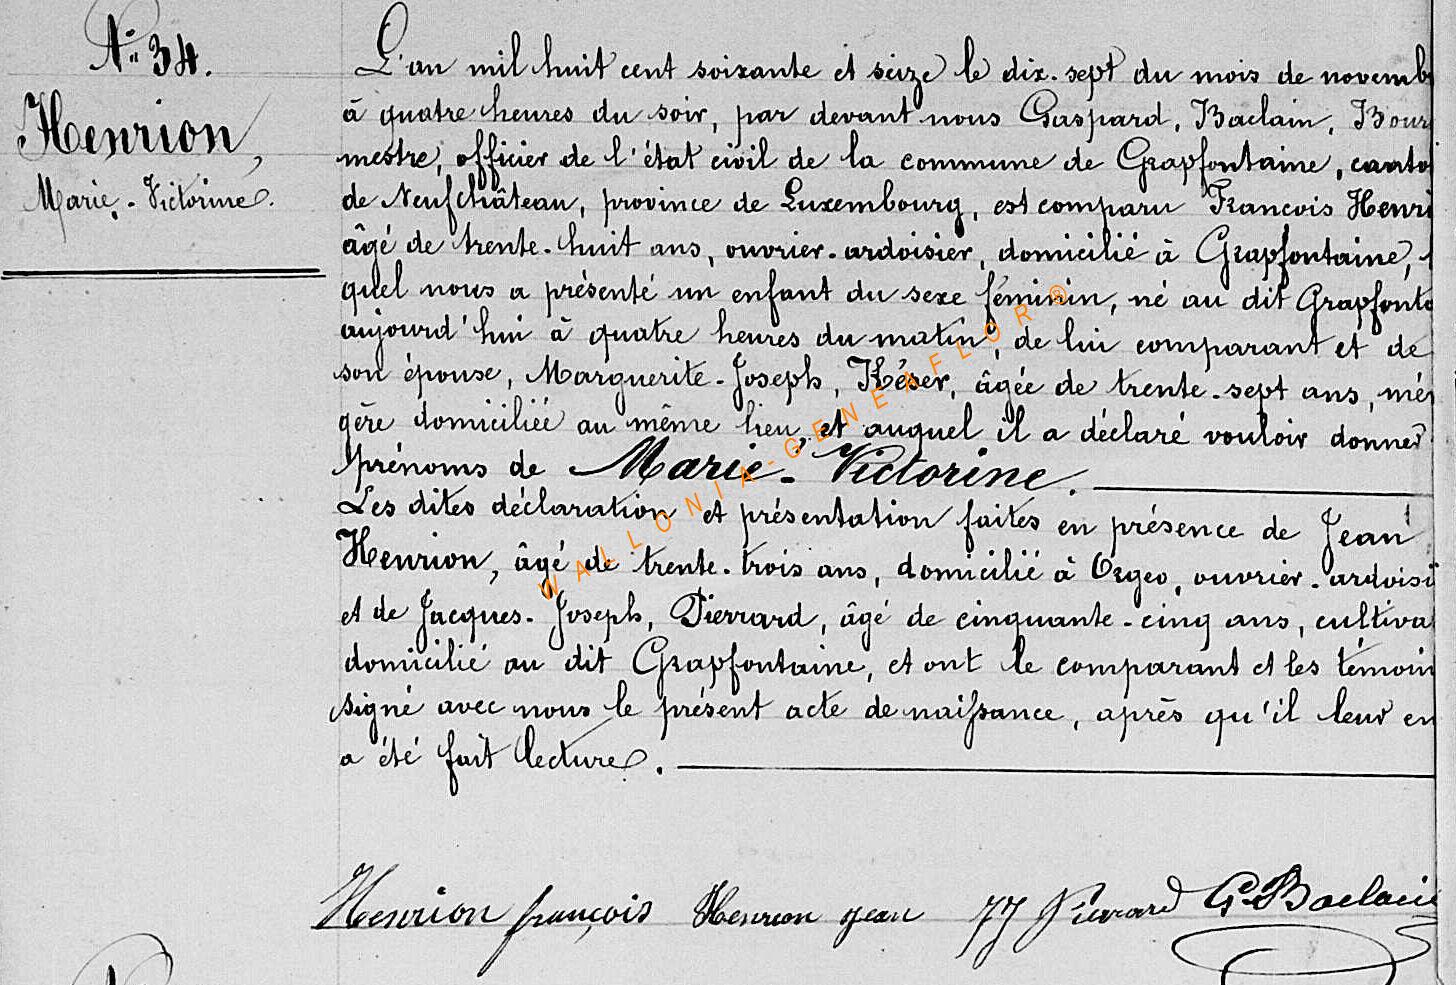 N° 34.
Henrion,
Marie-Victorine.
L'an mil huit cent soixante et seize le dix-sept du mois de novemb
à quatre heures du soir, par devant nous Gaspard, Baclain, Bour
mestre, officier de l'état civil de la commune de Grapfontaine, canto
de Neufchâteau, province de Luxembourg, est comparu François Henri
âgé de trente-huit ans, ouvrier-ardoisier, domicilié à Grapfontaine, l
quel nous a présenté un enfant du sexe féminin, né au dit Grapfonta
aujourd'hui à quatre heures du matin, de lui comparant et de
son épouse, Marguerite-Joseph, Késer, âgée de trente-sept ans, mén
gère domiciliée au même lieu, et auquel il a déclaré vouloir donner
prénoms de Marie-Victorine.
Les dites déclaration et présentation faites en présence de Jean
Henrion, âgé de trente-trois ans, domicilié à Orgeo, ouvrier-ardoisi
et de Jacques-Joseph, Pierrard, âgé de cinquante-cinq ans, cultiva
domicilié au dit Grapfontaine, et ont le comparant et les témoin
signé avec nous le présent acte de naissance, après qu'il leur en
a été fait lecture.
Henrion françois Henrion jean JJ Pierrard G. Baclain
WALLONIA-GENEAFLOR®